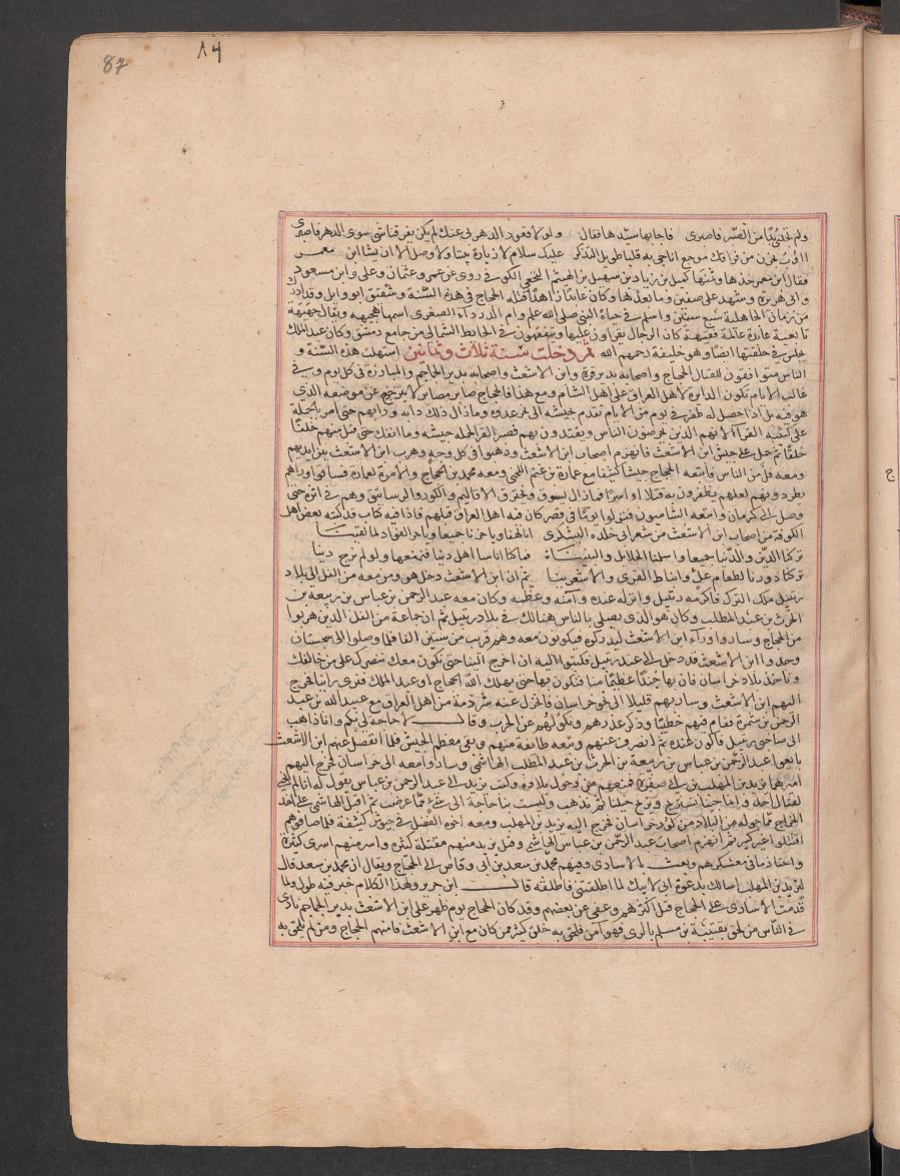 87
٨٩
ولم تجدى بدا من الصبر فاصبرى فاجابها سيدها فقال ولولا قعود الدهر فى عنك لم يكن يفرقنا شى سوى الدهر فاصبرى
اأوب بحزن من فراقك موجع اناجى به قلبا طويل التذكر عليك سلام لا زيارة بيننا ولا وصل الا ان يشا ابن معمر
فقال ابن معمر خذها وثمنها كميل بن زياد بن سهيل بن الهيثم النخعى الكوفى روى عن عمر وعثمان وعلى وابن مسعود
وابى هريرة وشهد على صفين وما بعدها وكان عابدا زاهدا قتله الحجاج فى هذه السنة وشقيق ابو وايل وقد ادرك
من زمان الجاهلية سبع سنين واسلم فى حياة النبى صلى الله علىه وسلم وام الدرداء الصغرى اسمها هجيمة ويقال جهيمة
تابعية عابدة عالمة فقيهة كان الرجال يقراون عليها ويتفقهون فى الحايط الشمالى من جامع دمشق وكان عبد الملك
يجلس فى حلقتها ايضا وهو خليفة رحمهم الله ثم دخلت سنة ثلاث وثمانين استهلت هذه السنة و
الناس متواقفون للقتال الحجاج واصحابه بدير قرة وابن الاشعث واصحابه بدير الجماجم والمبارزة فى كل يوم وفى
غالب الايام تكون الدايرة لاهل العراق على اهل الشام ومع هذا فالحجاج صابر مصابر لا يتزحزح عن موضعه الذى
هو فيه بل اذا حصل له ظفر فى يوم من الايام تقدم بجيشه الى نحر عدوه وما زال ذلك دابه ودابهم حتى امر بالحملة
على كتيبة القرآ لانهم الذين يحرضون الناس ويقتدون بهم فصبر القرا لحملة جيشه وما انفك حتى قتل منهم خلقا
خلقا ثم حمل على جيش ابن الاشعث فانهزم اصحاب ابن الاشعث وذهبوا فى كل وجه وهرب ابن الاشعث بين ايديهم
ومعه فل من الناس فاتبعه الحجاج جيشا كثيفا مع عمارة بن غنم اللخمى ومعه محمد بن الحجاج والامرة لعمارة فساقوا وراهم
يطردونهم لعلهم يظفرون به قتلا او اسرا فما زال يسوق ويخترق الاقاليم والكور والرساتيق وهم فى اثره حتى
فصل الى كرمان واتبعه الشاميون فنزلوا يوما فى قصر كان فيه اهل العراق قبلهم فاذا فيه كتاب قد كتبه بعض اهل
الكوفة من اصحاب ابن الاشعث من شعر ابى خلده اليشكرى ايا لهفا ويا حزنا جميعا ويا حر الفواد لما لقينا
تركنا الدين والدنيا جميعا واسلمنا الحلايل والبنينا فما كنا اناسا اهل دنيا فنمنعها ولو لم نرج دينا
تركنا دورنا لطغام عك وانباط القرى والاشعرينا ثم ان ابن الاشعث دخل هو ومن معه من الفل الى بلاد
رتبيل ملك الترك فاكرمه رتبيل وانزله عنده وآمنه وعظمه وكان معه عبد الرحمن بن عباس بن ربيعة بن
الحرث بن عبد المطلب وكان هو الذى يصلى بالناس هنالك فى بلاد رتبيل ثم ان جماعة من الفل الذين هربوا
من الحجاج وساروا وراء ابن الاشعث ليدركوه فيكونون معه وهم قريب من ستين الفا فلما وصلوا الى سجستان
وجدوا ابن الاشعث قد دخل الى عند رتبيل فكتبوا اليه ان اخرج الينا حتى نكون معك ننصرك على من خالفك
وناخذ بلاد خراسان فان بها جندا عظيما منا فنكون بها حتى يهلك الله الحجاج او عبد الملك فنرى راينا فخرج
اليهم ابن الاشعث وسار بهم قليلا الى نحو خراسان فانخزل عنه شرذمة من اهل العراق مع عبيد الله بن عبد
الرحمن بن سمرة فقام فيهم خطيبا وذكر غدرهم ونكولهم عن الحرب وقال لا حاجة لى بكم وانا ذاهب
الى صاحبى رتبيل فاكون عنده ثم انصرف عنهم وتبعه طايفة منهم وبقى معظم الجيش فلما انفصل عنهم ابن الاشعث
بايعوا عبد الرحمن بن عباس بن ربيعة بن الحرث بن عبد المطلب الهاشمى وساروا معه الى خراسان فخرج اليهم
اميرها يزيد بن المهلب بن ابى صفرة فمنعهم من دخول بلاده وكتب يزيد الى عبد الرحمن بن عباس يقول له انا لم نجى
لقتال احد وانما جينا نستريح ونريح خيلنا ثم نذهب وليست بنا حاجة الى شئ مما عرضت ثم اقبل الهاشمى على اخذ
الخراج مما حوله من البلاد من كور خراسان فخرج اليه يزيد بن المهلب ومعه اخوه المفضل فى جيوش كثيفة فلما صافوهم
اقتتلوا غير كثير ثم انهزم اصحاب عبد الرحمن بن عباس الهاشمى وقتل يزيد منهم مقتلة كثيرة واسر منهم اسرى كثيرة
واحتاز ما فى معسكرهم وبعث بالاسارى وفيهم محمد بن سعد بن ابى وقاص الى الحجاج ويقال ان محمد بن سعد قال
ليزيد بن المهلب اسالك بدعوة ابى لابيك لما اطلقتنى فاطلقه قال ابن جرير ولهذا الكلام خبر فيه طول ولما
قدمت الاسارى على الحجاج قتل اكثرهم وعفى عن بعضهم وقد كان الحجاج يوم ظهر على ابن الاشعث بدير الجماجم نادى
فى الناس من لحق بقتيبة بن مسلم بالرى فهو آمن فلحق به خلق كثير ممن كان مع ابن الاشعث فامنهم الحجاج ومن لم يلحق به